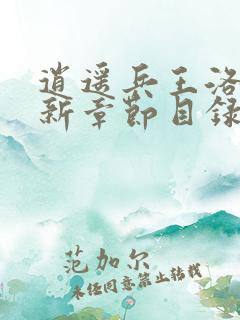 逍遥兵王洛
新章節目録
范加尔
未经同意禁止转载